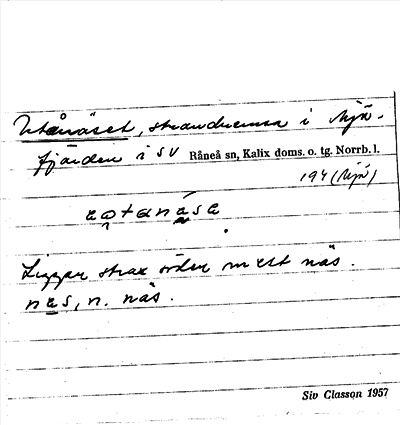 Utånäset, strandremsa i Mjö-
fjärden i SV Råneå sn, Kalix doms. o. tg. Norrb. l.
194 (Mjö)
Ligger strax söder m ett näs.
näs, n. näs.
Siv Classon 1957